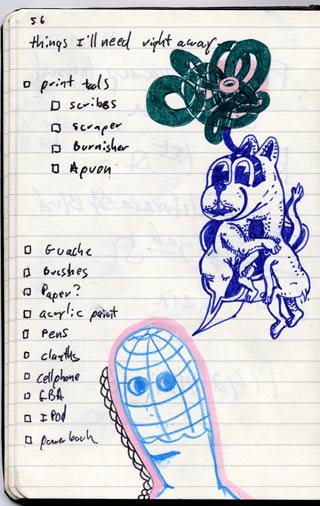 56
things I'll need right away
print tools
scribes
scraper
Burnisher
Apron
Guache
Brushes
Paper?
acrylic paint
pens
cloths
cellphone
GBA
IPod
powerbook